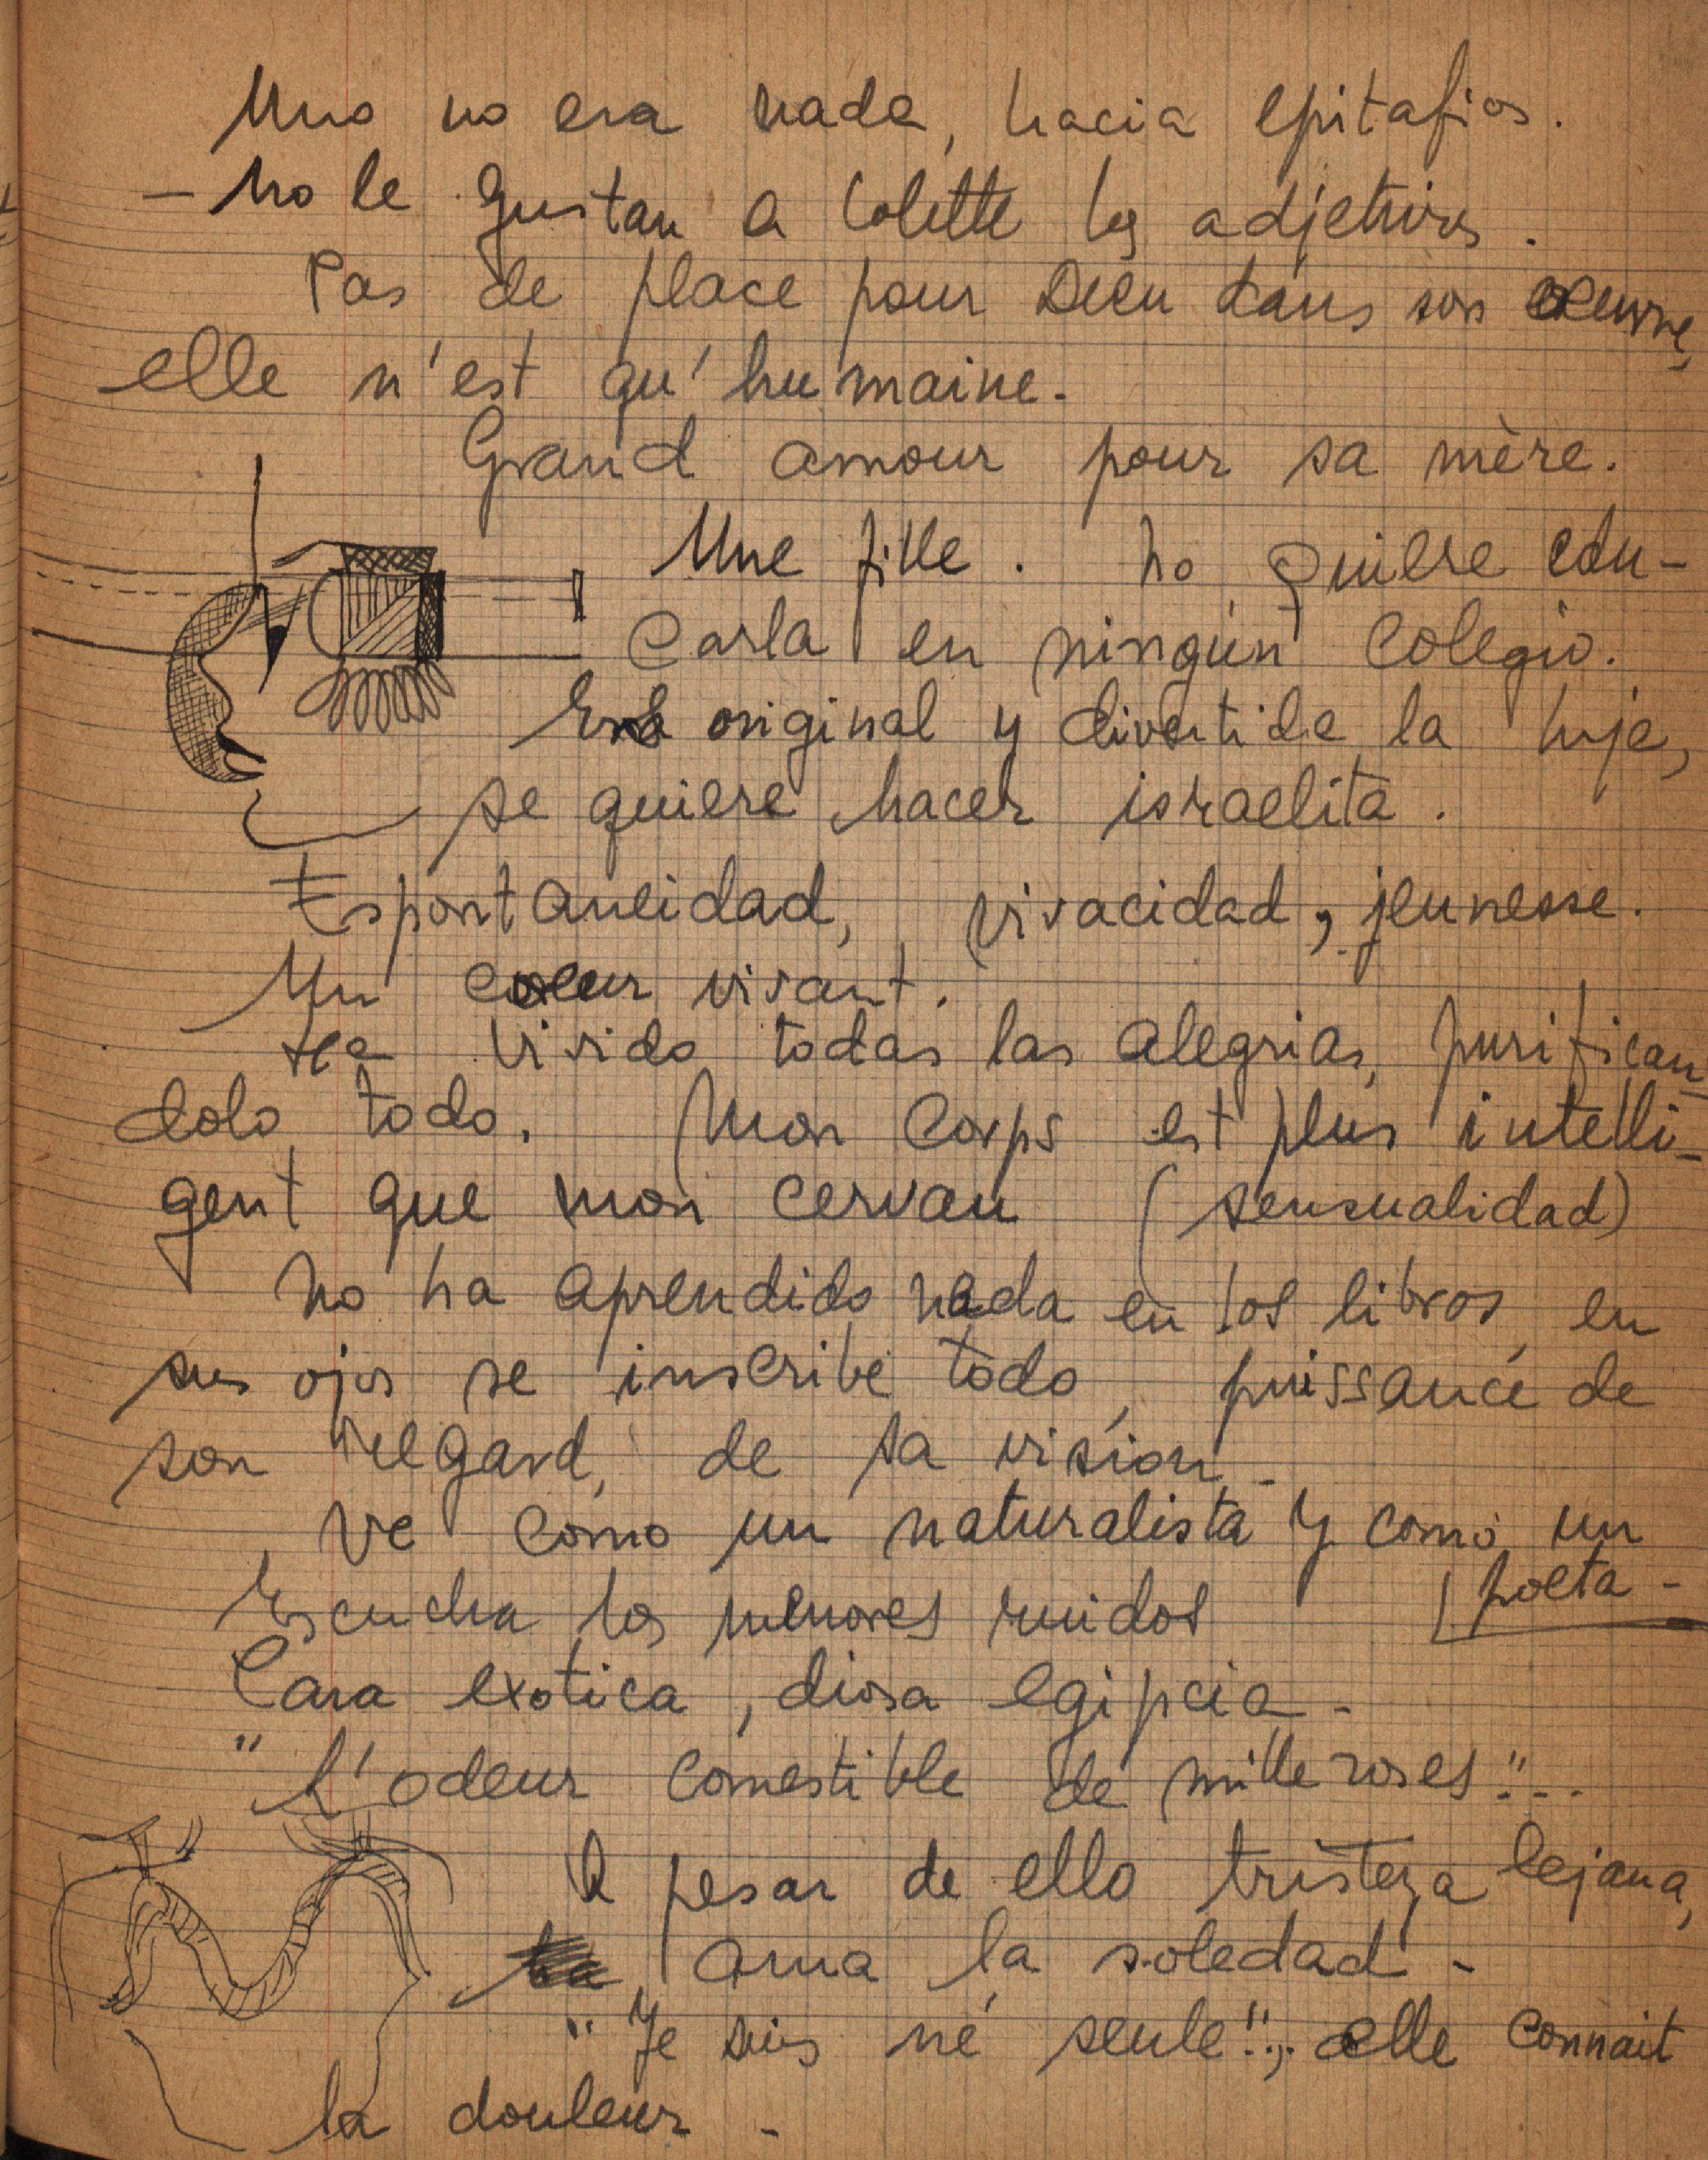 Uno no era nada, hacia epitafios.
- No le gustan a Colette los adjetivos.
Pas de place pour Dieu dans son oeuvre,
elle n'est qu'humaine.
Grand amour pour sa mère.
Une fille. No quiere edu-
carla en ningún colegio.
Era original y divertida la hija,
se quiere hacer israelita.
Espontaneidad, vivacidad, jeunesse.
Un coeur vivant.
Ha vivido todas las alegrias, purifican-
dolo todo. Mon corps est plus intelli-
gent que mon cerveau (sensualidad)
No ha aprendido nada en los libros, en
sus ojos se inscribe todo, puissance de
son regard, de sa vision.
Ve como un naturalista y como un
poeta -
Escucha los menores ruidos
Cara exotica, diosa egipcia -
"L'odeur comestible de mille roses"...
A pesar de ello tristeza lejana,
ama la soledad -
"Je suis né seule"; elle connait
la douleur -